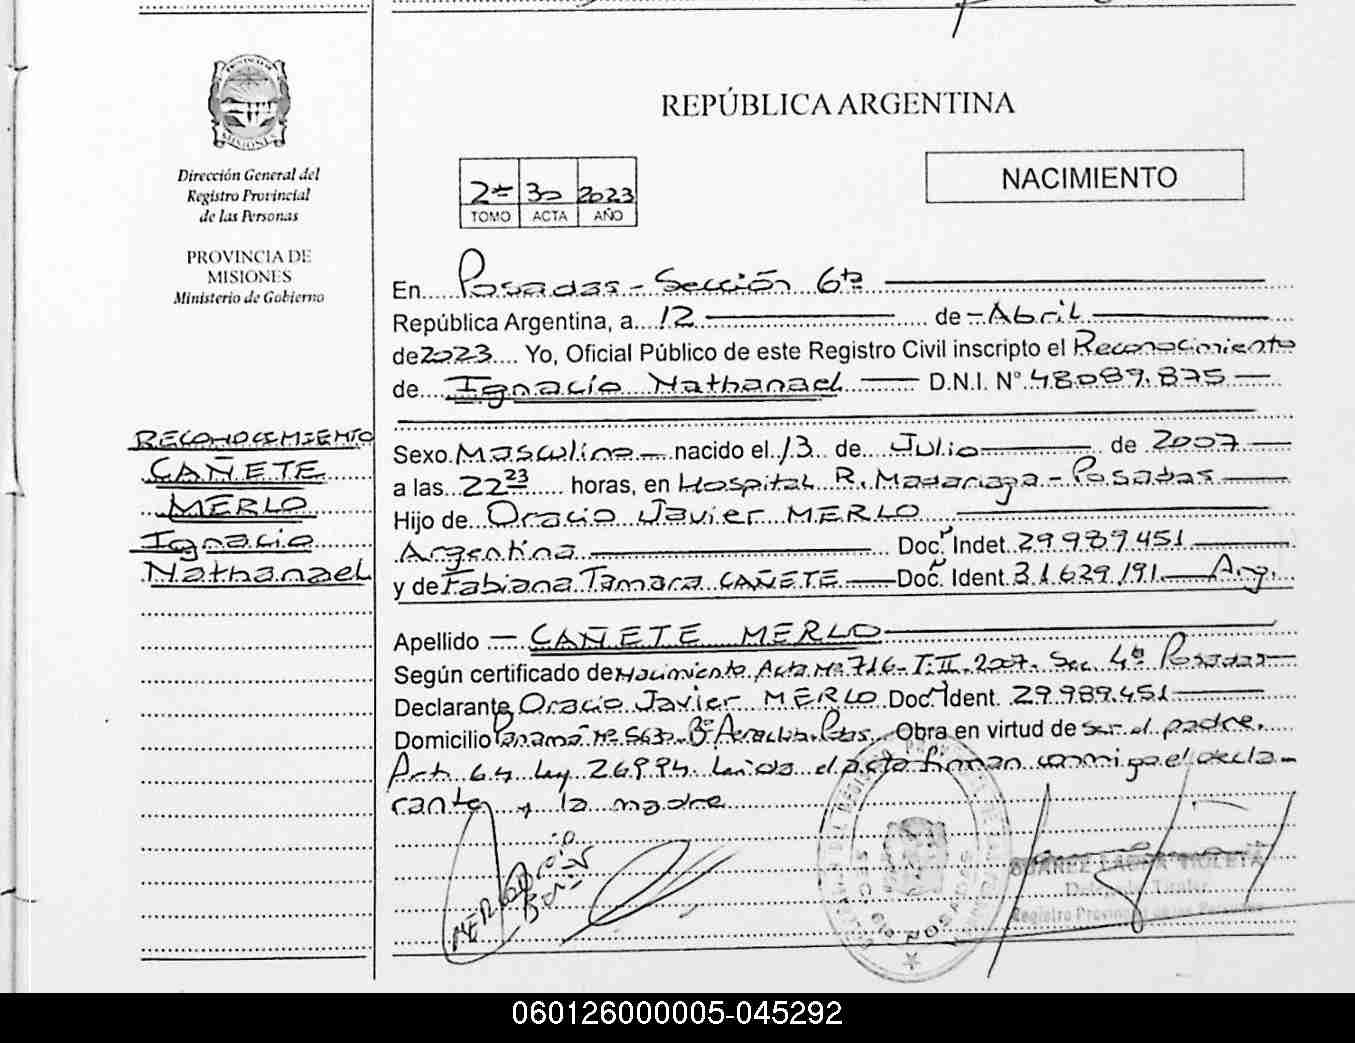 REPÚBLICA ARGENTINA
PROVINCIA DE
MISIONES
Dirección General del
Registro Provincial
de las Personas
PROVINCIA DE
MISIONES
Ministerio de Gobierno
2º 30 2023
TOMO ACTA AÑO
NACIMIENTO
RECONOCIMIENTO
CAÑETE
MERLO
Ignacio
Nathanael
En Posadas - Sección 6ta
República Argentina, a 12 de - Abril
de 2023 Yo, Oficial Público de este Registro Civil inscripto el Reconocimiento
de Ignacio Nathanael D.N.I. Nº 48.089.875
Sexo Masculino nacido el 13 de Julio de 2007
a las 22 23 horas, en Hospital R. Madariaga - Posadas
Hijo de Oracio Javier MERLO
Argentina Doc. Indet. 29.989.451
y de Fabiana Tamara CAÑETE Doc. Ident. 31.629.191 Arg.
Apellido CAÑETE MERLO
Según certificado de Nacimiento Acta Nº 716 - T. II - 2007 - Sec. 4ª Posadas
Declarante Oracio Javier MERLO Doc. Ident. 29.989.451
Domicilio Panamá Nº 563 - Bº Obra en virtud de ser el padre.
Art. 64 Ley 26994. Leída el acta firman conmigo el decla-
rante y la madre
MERLO
SUAREZ LAURA VIOLETA
Delegada Titular
Registro Provincial de las Personas
POSADAS
060126000005-045292